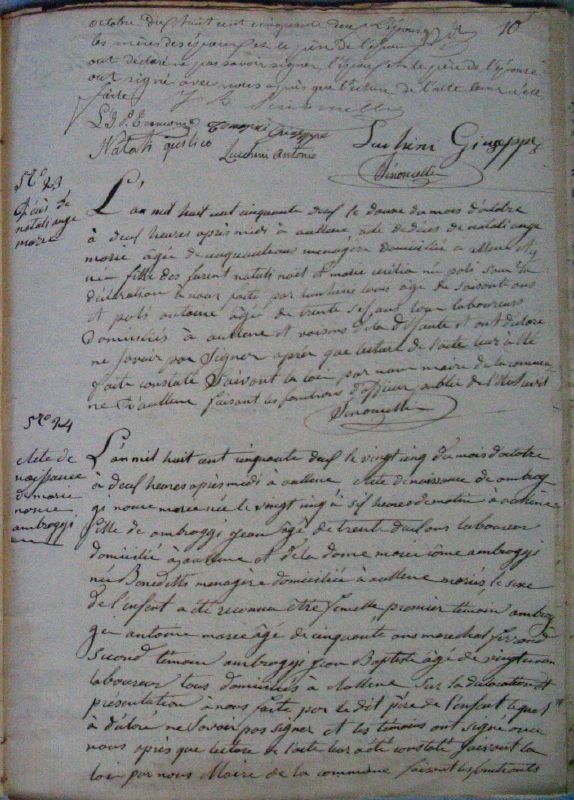 10
octobre dix huit cent cinquante deux
les mères des époux et le père de l'époux
ont déclaré ne pas savoir signer l'époux et le père de l'épouse
ont signé avec nous après que lecture de l'acte leur a été
faite
Natali
Lucchini Antonio
Lucchini Giuseppe
Simonetti
N° 23
Décès de
natali ange
marie
L'an mil huit cent cinquante deux le douze du mois d'octobre
à deux heures après midi à aullene acte de décès de natali ange
marie âgée de cinquante ans menagère domiciliée a aullene et y
née fille des furent natali noël et marie née poli sur la
déclaration à nous faite par âgé de soixante ans
et poli antoine âgé de trente six ans tous laboureurs
domiciliés à aullene et voisins de la défunte et ont déclaré
ne savoir pas signer après que lecture de l'acte leur a été
faite constaté suivant la loi par nous maire de la commu
ne d'aullene faisant les fonctions d'officier public de l'état civil
Simonetti
N° 24
Acte de
naissance
de marie
noncie
ambroggi
L'an mil huit cent cinquante deux le vingt cinq du mois d'octobre
à deux heures après midi à aullene acte de naissance de ambrog
gi née le vingt cinq à six heures de matin à aullene
fille de ambroggi jean âgé de trente deux ans laboureur
domicilié à aullene et de la dame marie ambroggi
née Benedetti menagère domiciliée à aullene mariés, le sexe
de l'enfant a été reconnu être femelle premier témoin ambrog
gi antoine marie âgé de cinquante ans marechal ferrand
second témoin ambroggi jean Baptiste âgé de vingt
laboureur tous domiciliés à Aullene sur la déclaration et
présentation à nous faite par le dit père de l'enfant lequel
à déclaré ne savoir pas signer et les témoins ont signé avec
nous après que lecture de l'acte leur a été constaté suivant la
loi par nous Maire de la commune faisant les fonctions